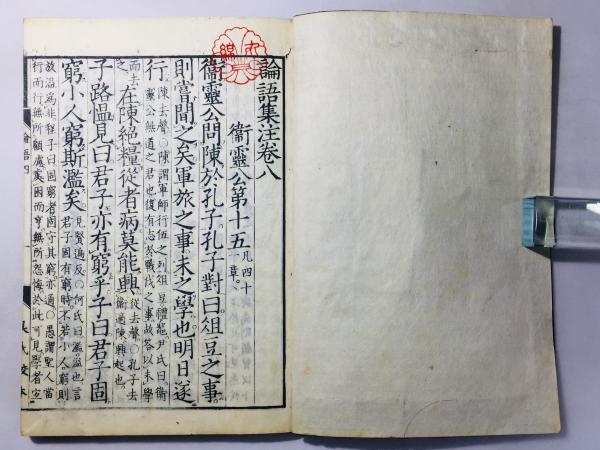 論語集注卷八
衞靈公第十五 凡四十一章
衞靈公問陳於孔子孔子對曰俎豆之事
則嘗聞之矣軍旅之事未之學也明日遂
行 陳去聲○陳謂軍師行伍之列俎豆禮器尹氏曰衞
靈公無道之君也復有志於戰伐之事故答以未學
而去之 在陳絕糧從者病莫能興 從去聲○孔子去
衞適陳興起也
子路慍見曰君子亦有窮乎子曰君子固
窮小人窮斯濫矣 見賢遍反○何氏曰濫溢也言
君子固有窮時不若小人窮則
放溢爲非程子曰固窮者固守其窮亦通○愚謂聖人當
行而行無所顧慮處困而亨無所怨悔於此可見學者宜
論語四